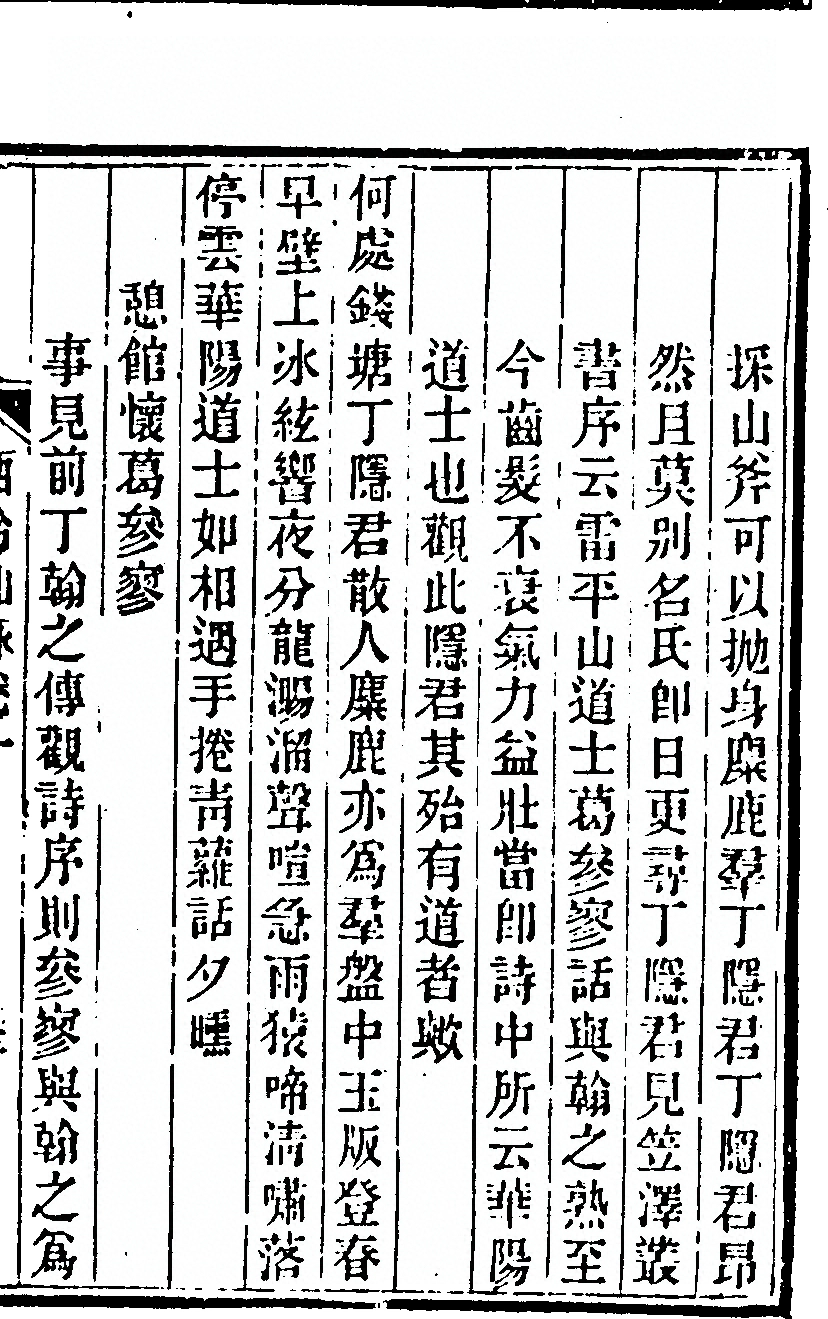 採山斧可以抛身麋鹿羣丁隱君丁隱君昂
然且莫别名氏卽日更尋丁隱君見笠澤叢
書序云雷平山道士葛參寥話與翰之熟至
今齒髮不衰氣力益壯當卽詩中所云華陽
道士也觀此隱君其殆有道者歟
何處錢塘丁隱君散人麋鹿亦爲羣盤中玉版登春
早壁上冰絃響夜分龍溮溜聲喧急雨猿啼清嘯落
停雲華陽道士如相遇手捲靑蘿話夕曛
憩館懷葛參寥
事見前丁翰之傳觀詩序則參寥與翰之爲